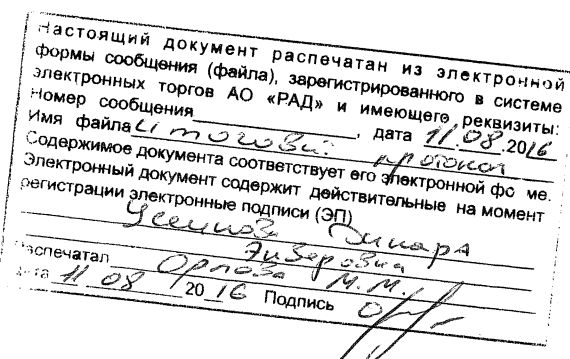 Настоящий документ распечатан из электронной
формы сообщения (файла), зарегистрированного в системе
электронных торгов АО «РАД» и имеющего реквизиты:
Номер сообщения____________, дата 11.08.2016
Имя файла Итоговый протокол
Содержимое документа соответствует его электронной фо ме.
Электронный документ содержит действительные на момент
регистрации электронные подписи (ЭП)
Динара
Энверовна
Распечатал Орлова М.М.
дата 11 08 2016 Подпись